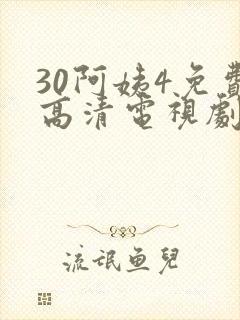 30阿姨4免費
高清電視劇
流氓魚兒